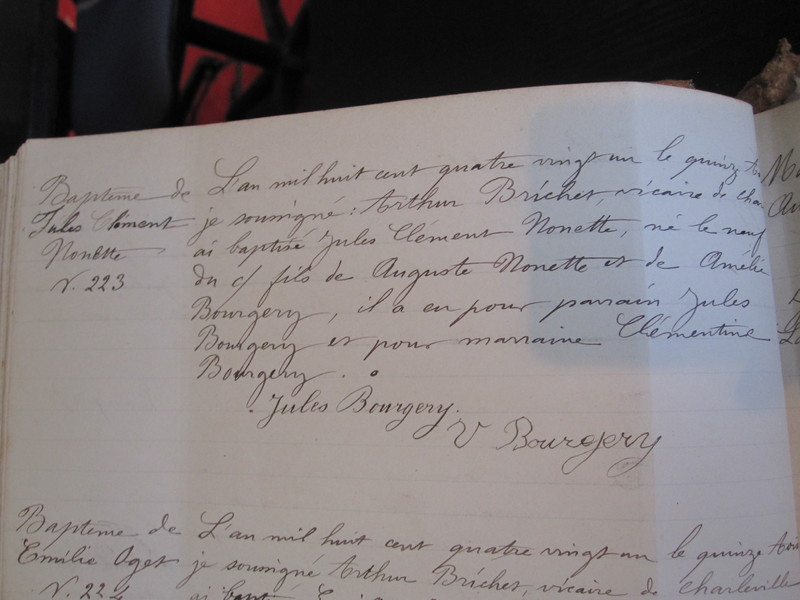 Baptême de
Jules Clément
Nonette
N. 223
L'an mil huit cent quatre vingt un le quinze
je soussigné: Arthur Brichet, vicaire de Char
ai baptisé Jules Clément Nonette, né le neuf
du c/ fils de Auguste Nonette et de Amélie
Bourgery, il a eu pour parrain Jules
Bourgery et pour marraine Clémentine
Bourgery.
Jules Bourgery.
V Bourgery
Baptême de
Emilie Oget
N. 224
L'an mil huit cent quatre vingt un le quinze
je soussigné Arthur Brichet, vicaire de Charleville
ai